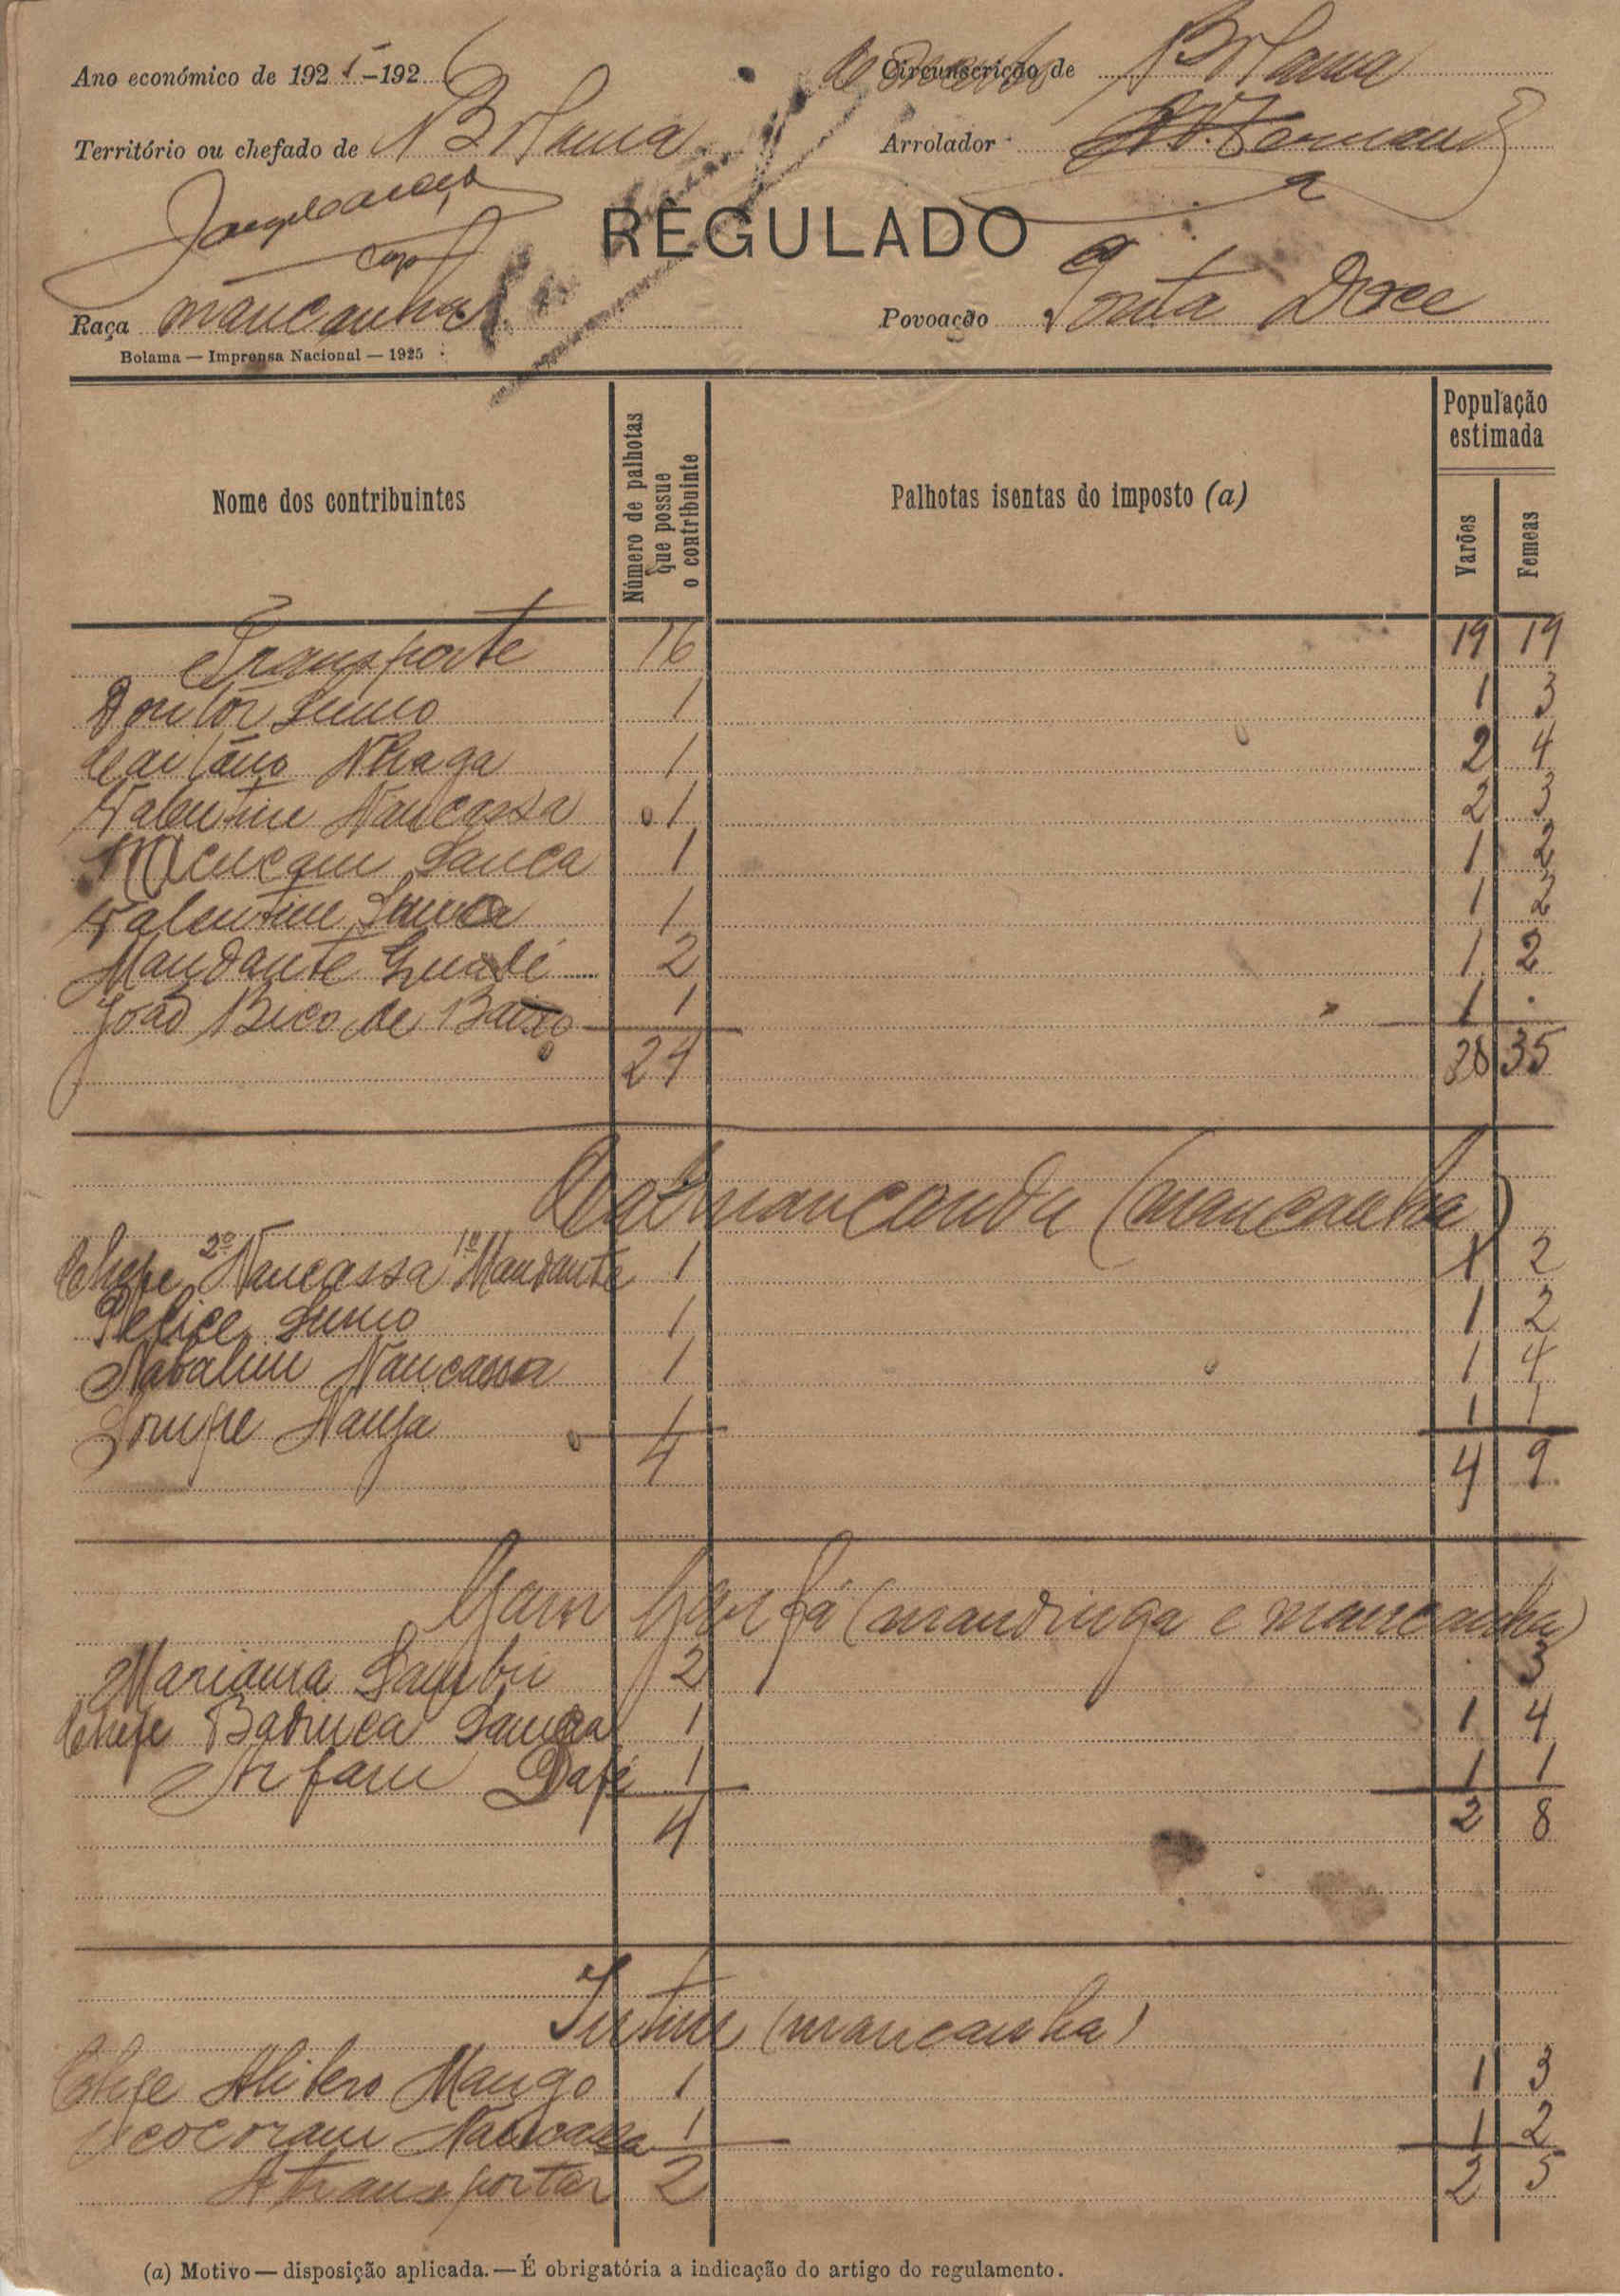 Ano económico de 1925-1926
Concelho Circunscrição de Bolama
Território ou chefado de Bolama
Arrolador
REGULADO
Raça mancanha
Povoação Ponta Doce
Bolama — Imprensa Nacional — 1925
Nome dos contribuintes
Número de palhotas que possue o contribuinte
Palhotas isentas do imposto (a)
População estimada
Varões
Femeas
Transporte 16 19 19
1 3
Caitano Nhaga 1 2 4
Valentim Nancassa 1 2 3
Sanca 1 1 2
Valentim Sanca 1 1 2
Mandante 2 1 2
João Bico de Baixo 1 1
24 28 35
(mancanha)
Chefe 2º Nancassa 1º Mandante 1 1 2
Felice 1 1 2
Nabalim Nancassa 1 1 4
1 1 1
4 4 9
Gam (mandinga e mancanha)
Mariama 2 3
Chefe Badinca 1 1 4
Arfam Dafé 1 1 1
4 2 8
Intim (mancanha)
Chefe Mango 1 1 3
Nancassa 1 1 2
A transportar 2 2 5
(a) Motivo — disposição aplicada. — É obrigatória a indicação do artigo do regulamento.